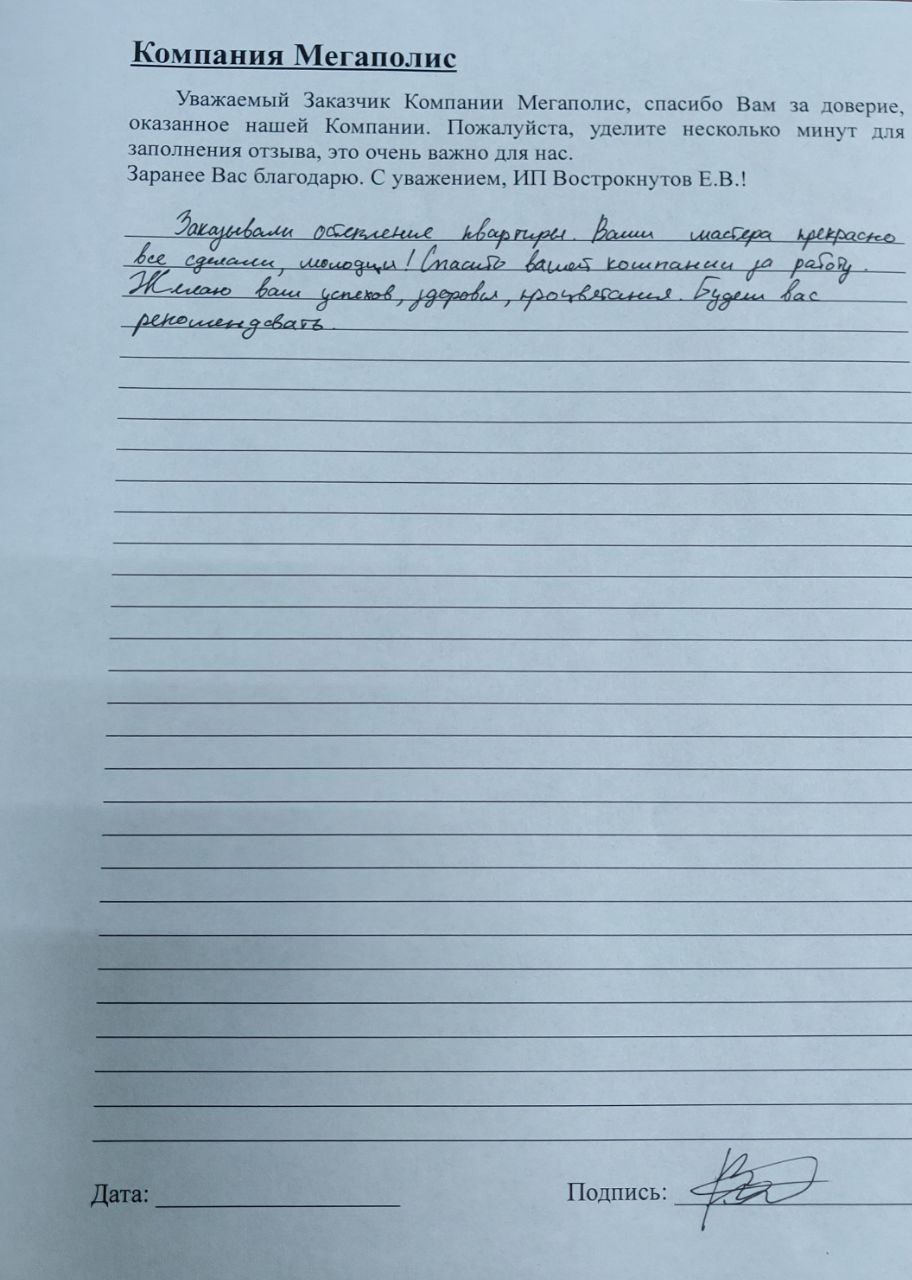 Компания Мегаполис
Уважаемый Заказчик Компании Мегаполис, спасибо Вам за доверие,
оказанное нашей Компании. Пожалуйста, уделите несколько минут для
заполнения отзыва, это очень важно для нас.
Заранее Вас благодарю. С уважением, ИП Вострокнутов Е.В.!
Заказывали остекление квартиры. Ваши мастера прекрасно
все сделали, молодцы! Спасибо вашей компании за работу.
Желаю вам успехов, здоровья, процветания. Будем вас
рекомендовать.
Дата: Подпись: